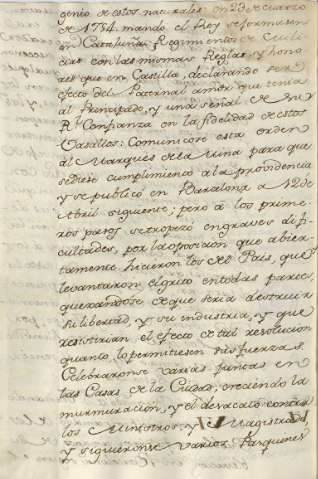 genio de estos naturales. en 23 de Marzo
de 1734. mandó el Rey se formasen
en Cataluña Regimientos de Mili-
cias con las mismas Reglas, y hono-
res que en Castilla, declarando ser
efecto del Paternal amor que tenia
al Principado, y una señal de su
Rl. Confianza en la fidelidad de estos
Vasallos: Comunicose esta orden
al Marques de la Mina para que
se diese cumplimiento a la providencia
y se publicó en Barzelona a 12 de
Abril siguiente; pero a los prime-
ros pasos se tropezó en graves difi-
cultades, por la oposicion que abier-
tamente hicieron los del Pais, que
levantaron el grito en todas partes,
quexandose de que seria destruir
su libertad, y su industria, y que
resistirian el efecto de tal resolucion
quanto lo permitiesen sus fuerzas.
Celebraronse varias juntas en
las Casas de la Ciudad, creciendo la
murmuracion, y el desacato contra
los Ministros, y Magistrados
y siguieronse varios Pasquines